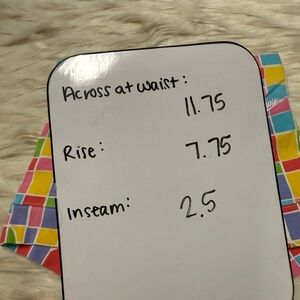 Across at waist:
11.75
Rise:
7.75
Inseam:
2.5